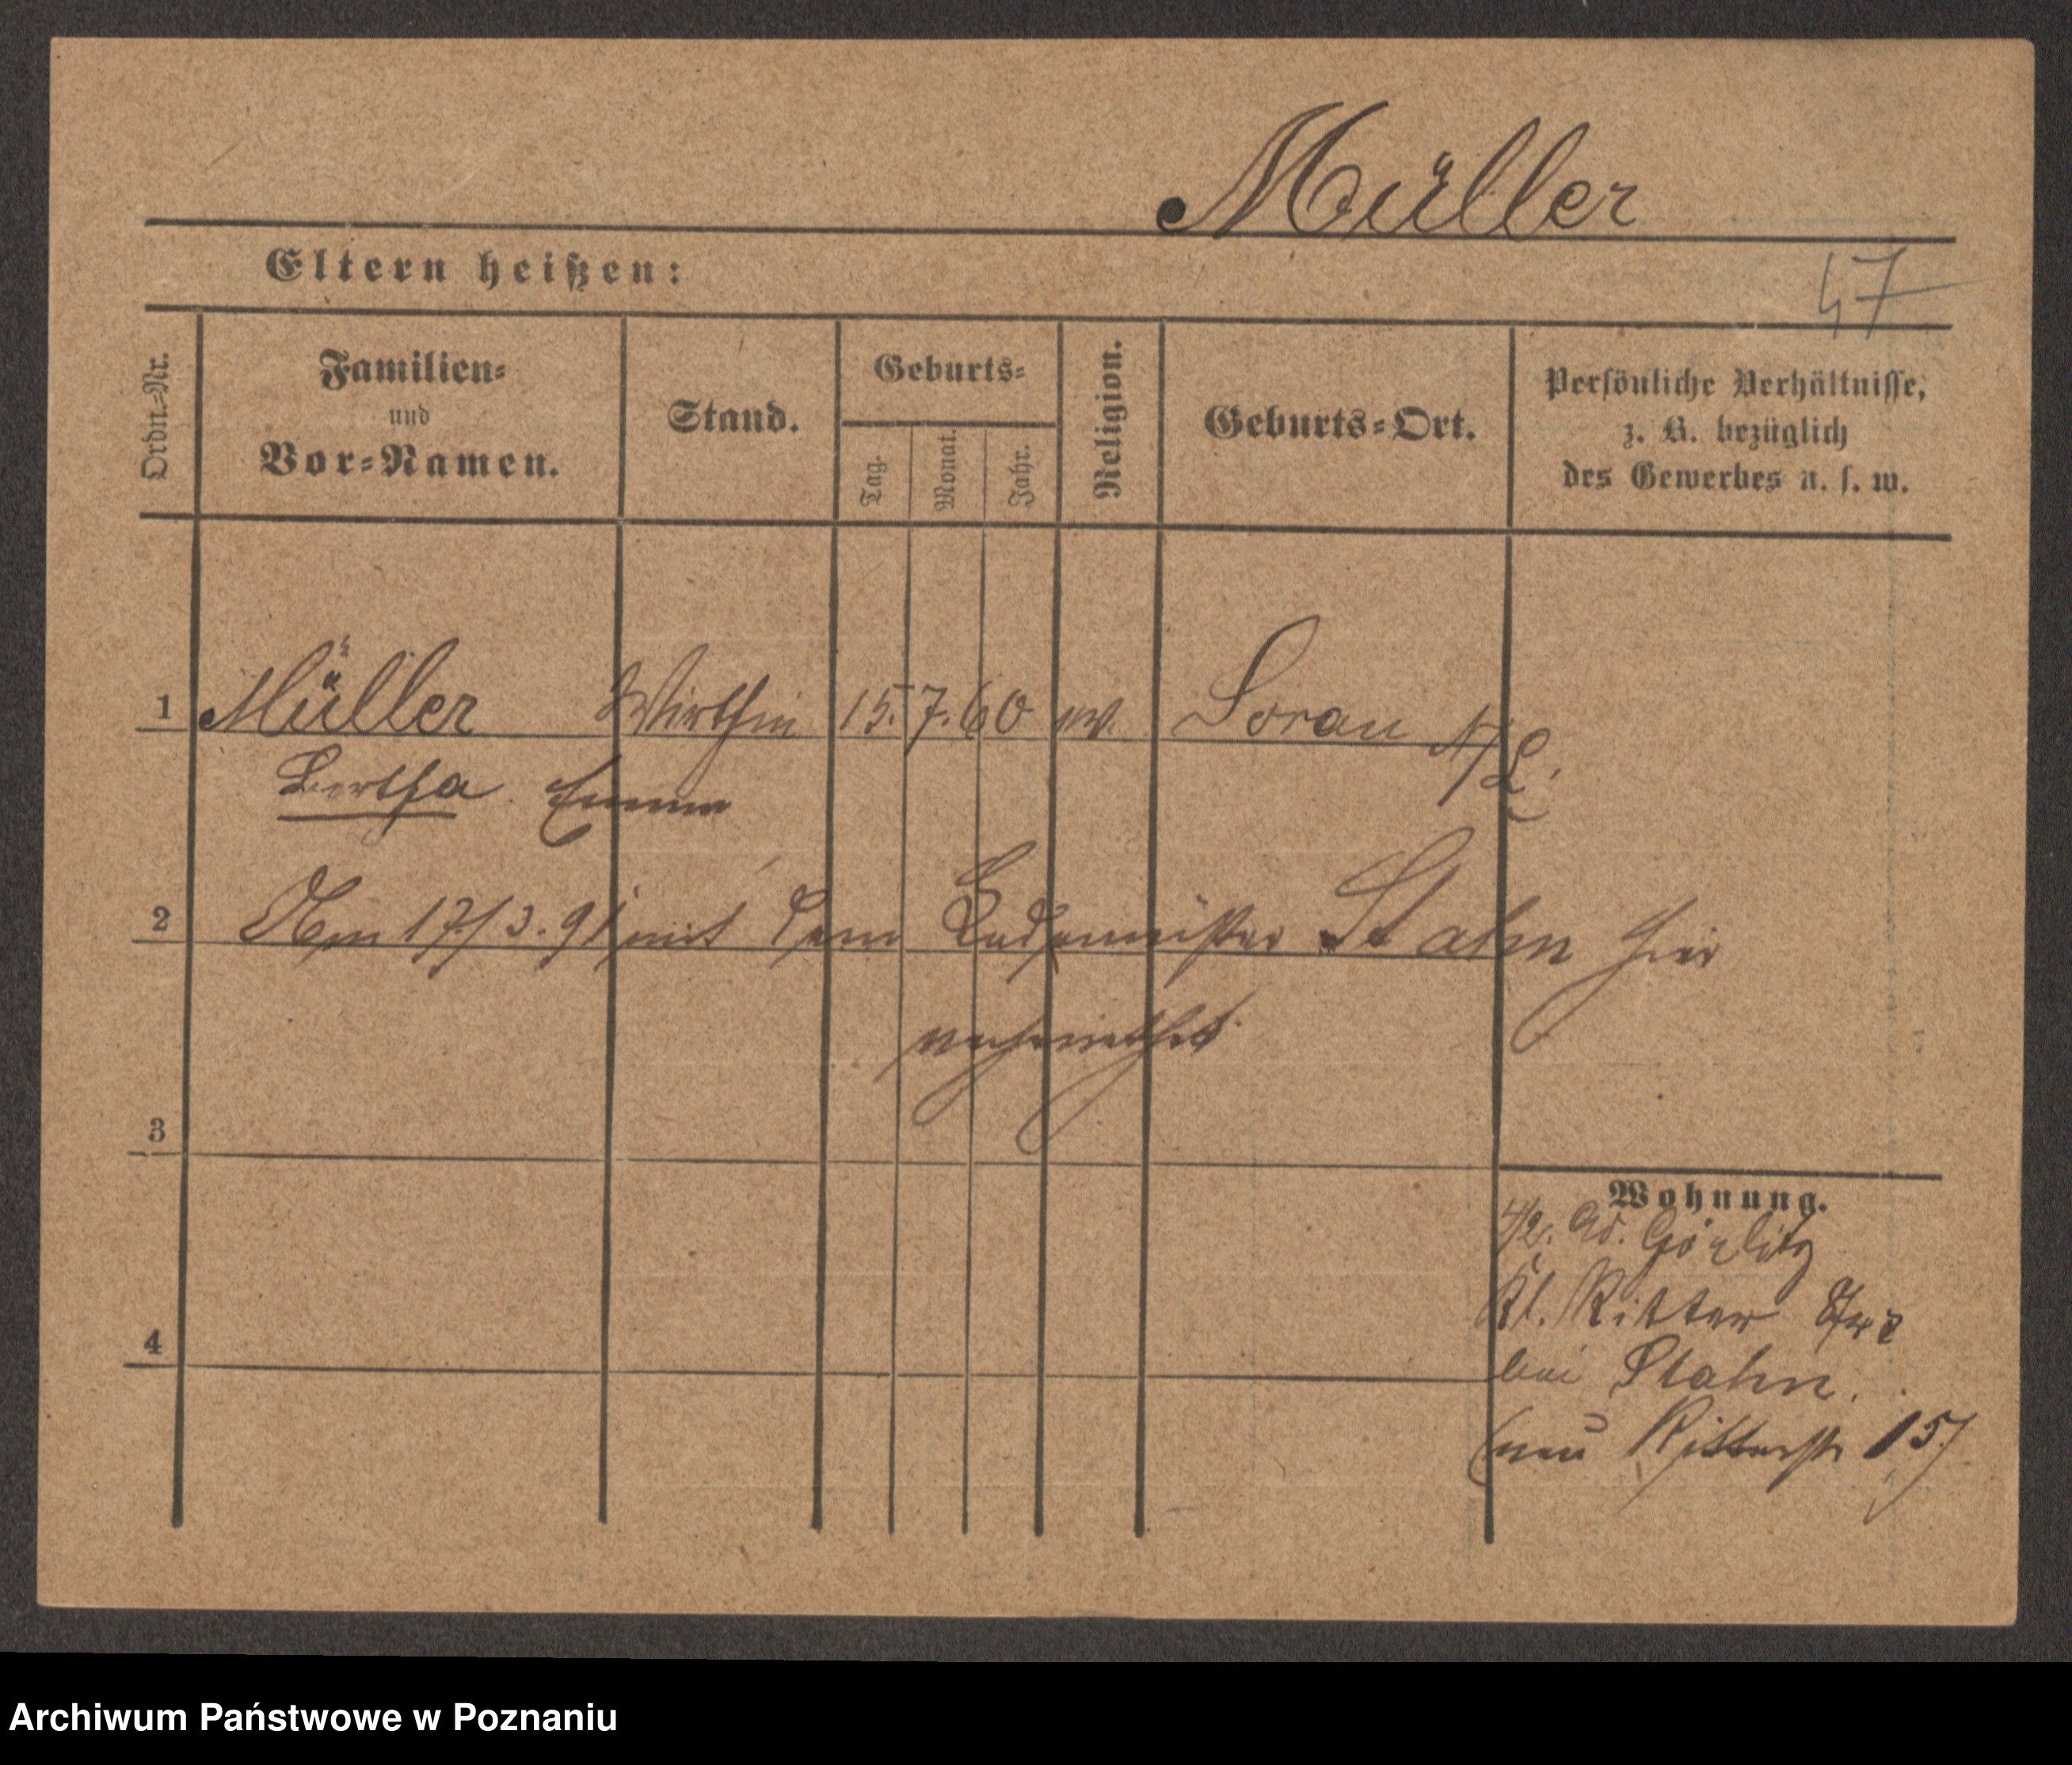 Müller
Eltern heißen:
47
Ordn.=Nr.
Familien=
und
Vor=Namen.
Stand.
Geburts=
Tag.
Monat.
Jahr.
Religion.
Geburts=Ort.
Persönliche Verhältnisse,
z. B. bezüglich
des Gewerbes u. s. w.
1 Müller Wirthin 15. 7. 60 ev. Sorau N/L.
Bertha Emma
2 Am 17/3. 91 mit dem Lademeister Stahn hier
verheirathet.
3
Wohnung.
4/2. Görlitz
Kl. Ritter Str 2
4
bei Stahn.
(neu Ritterstr 15)
Archiwum Państwowe w Poznaniu